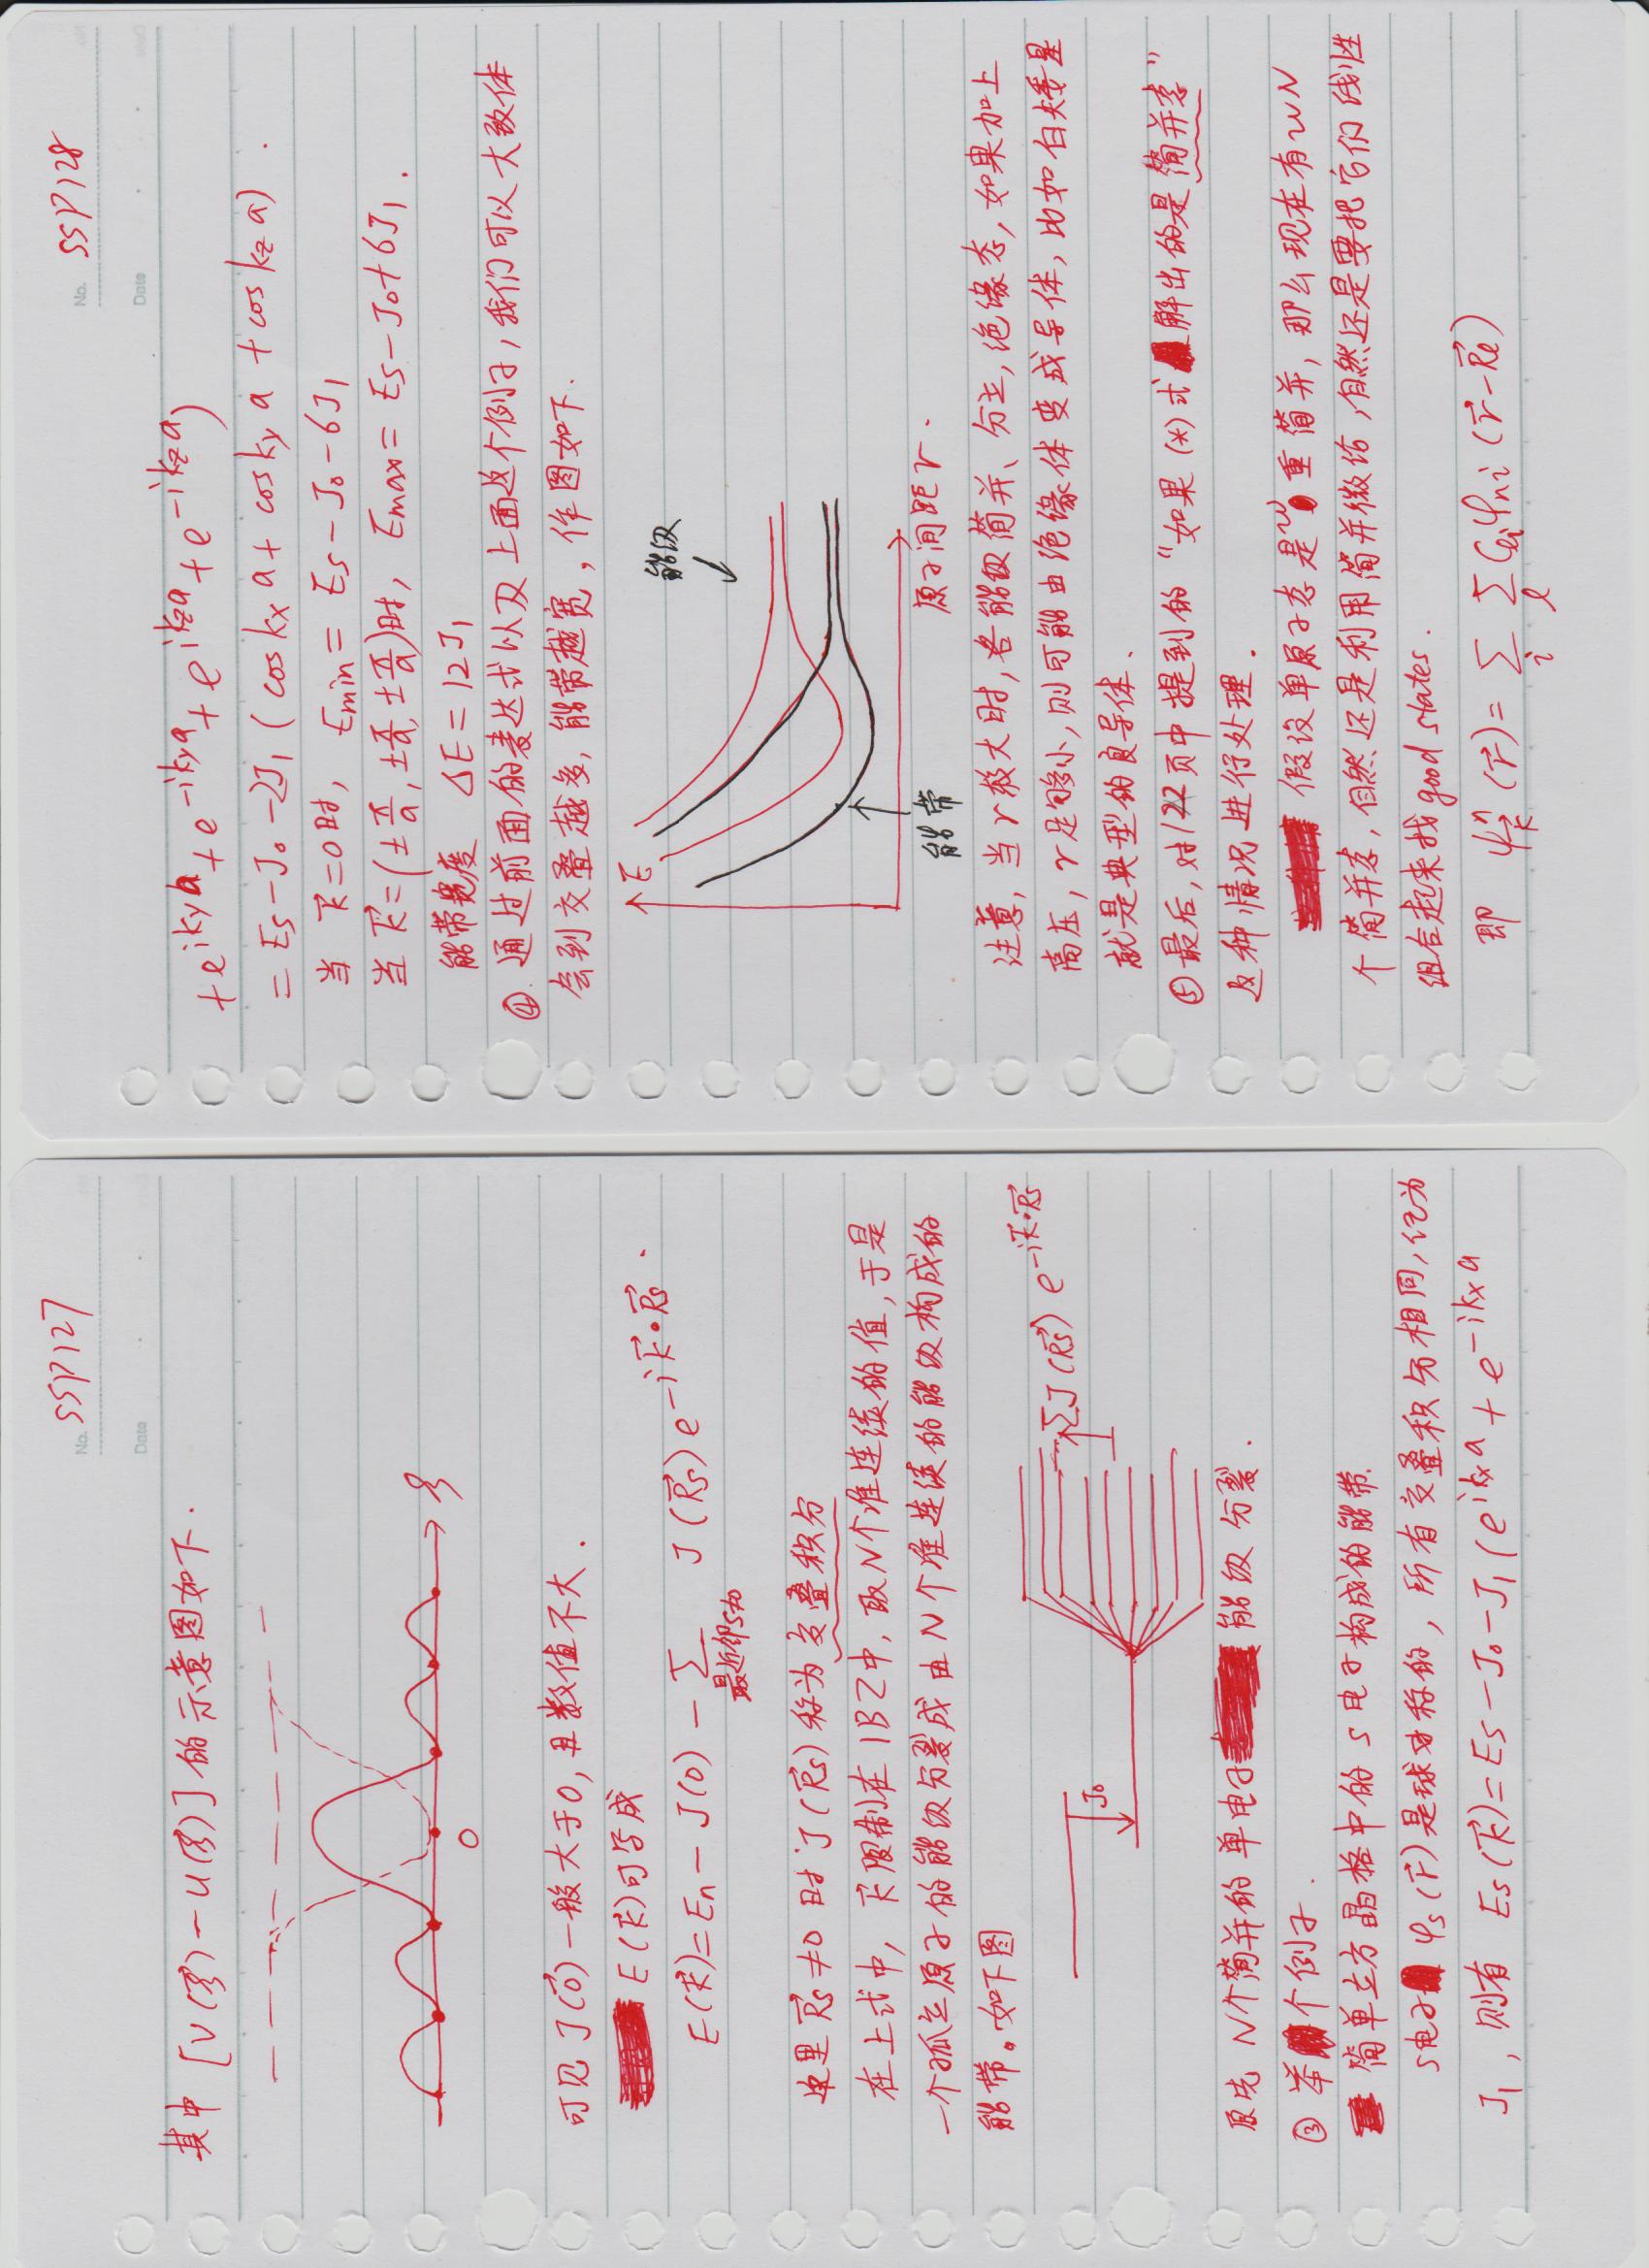 No. SSP127
Date
其中 [V(ξ⃗)-U(ξ⃗)] 的示意图如下.
ξ
0
可见 J(0⃗) 一般大于0, 且数值不大.
E(k⃗)可写成
E(k⃗)=En-J(0)-∑ J(R⃗s)e^{-ik⃗·R⃗s}.
最近邻s≠0
这里 R⃗s≠0 时 J(R⃗s) 称为交叠积分
在上式中, k⃗限制在1BZ中, 取N个准连续的值, 于是
一个孤立原子的能级分裂成由N个准连续的能级构成的
能带。如下图
J₀
∑J(R⃗s) e^{-ik⃗·R⃗s}
原先 N个简并的单电子 能级分裂.
③ 举个例子.
简单立方晶格中的s电子构成的能带.
s电子 φs(r⃗)是球对称的, 所有交叠积分相同, 记为
J₁, 则有 Es(k⃗)=Es-J₀-J₁(e^{ikxa}+e^{-ikxa}
No. SSP128
Date
+e^{ikya}+e^{-ikya}+e^{ikza}+e^{-ikza})
=Es-J₀-2J₁(coskxa+coskya+coskza).
当 k⃗=0时, Emin=Es-J₀-6J₁
当 k⃗=(±π/a, ±π/a, ±π/a)时, Emax=Es-J₀+6J₁.
能带宽度 ΔE=12J₁
④. 通过前面的表达式以及上面这个例子, 我们可以大致体
会到交叠越多, 能带越宽, 作图如下.
E
能级
能带
原子间距r.
注意, 当r较大时, 各能级简并、分立, 绝缘态, 如果加上
高压, r足够小, 则可能由绝缘体变成导体, 比如白矮星
就是典型的良导体.
⑤ 最后, 对122页中提到的“如果(*)式解出的是简并态”
这种情况进行处理.
假设单原子态是w重简并, 那么现在有wN
个简并态, 自然还是利用简并微扰, 自然还是要把它们线性
组合起来找good states.
即 ψ^n_k⃗(r⃗)=∑_i ∑_l C_{li}φ_{ni}(r⃗-R⃗l)